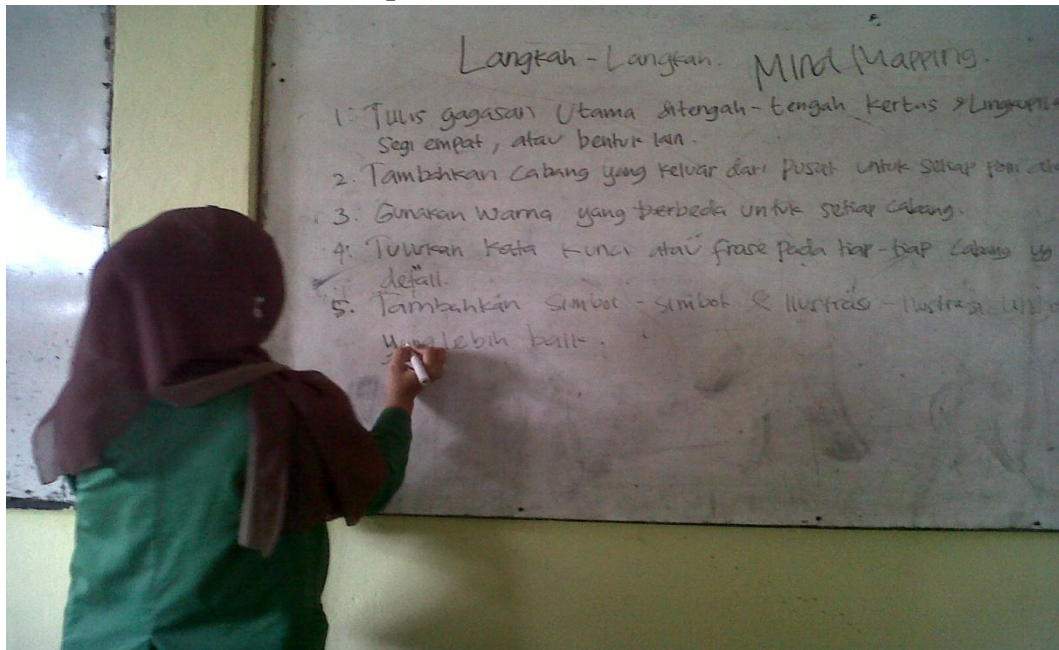 Langkah - Langkah. Mind Mapping.
1. Tulis gagasan Utama ditengah - tengah kertas &
Segi empat, atau bentuk lain.
2. Tambahkan Cabang yang keluar dari Pusat untuk setiap
3. Gunakan Warna yang berbeda untuk setiap cabang.
4. Tuliskan Kata Kunci atau frase pada tiap - tiap Cabang yg
detail.
5. Tambahkan Simbol - simbol & Ilustrasi - Ilustrasi
yang lebih baik.